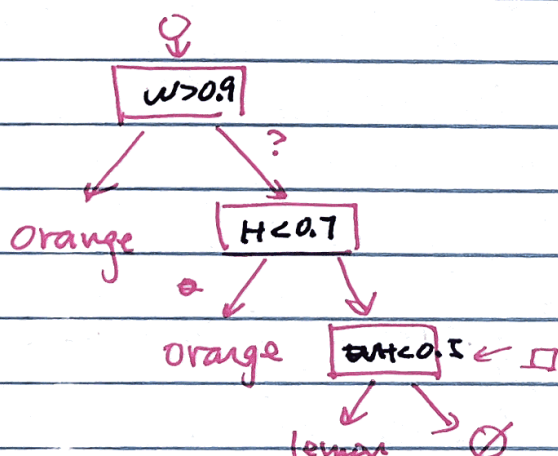 W>0.9
?
orange
H<0.7
orange
H<0.5
lemon
∅